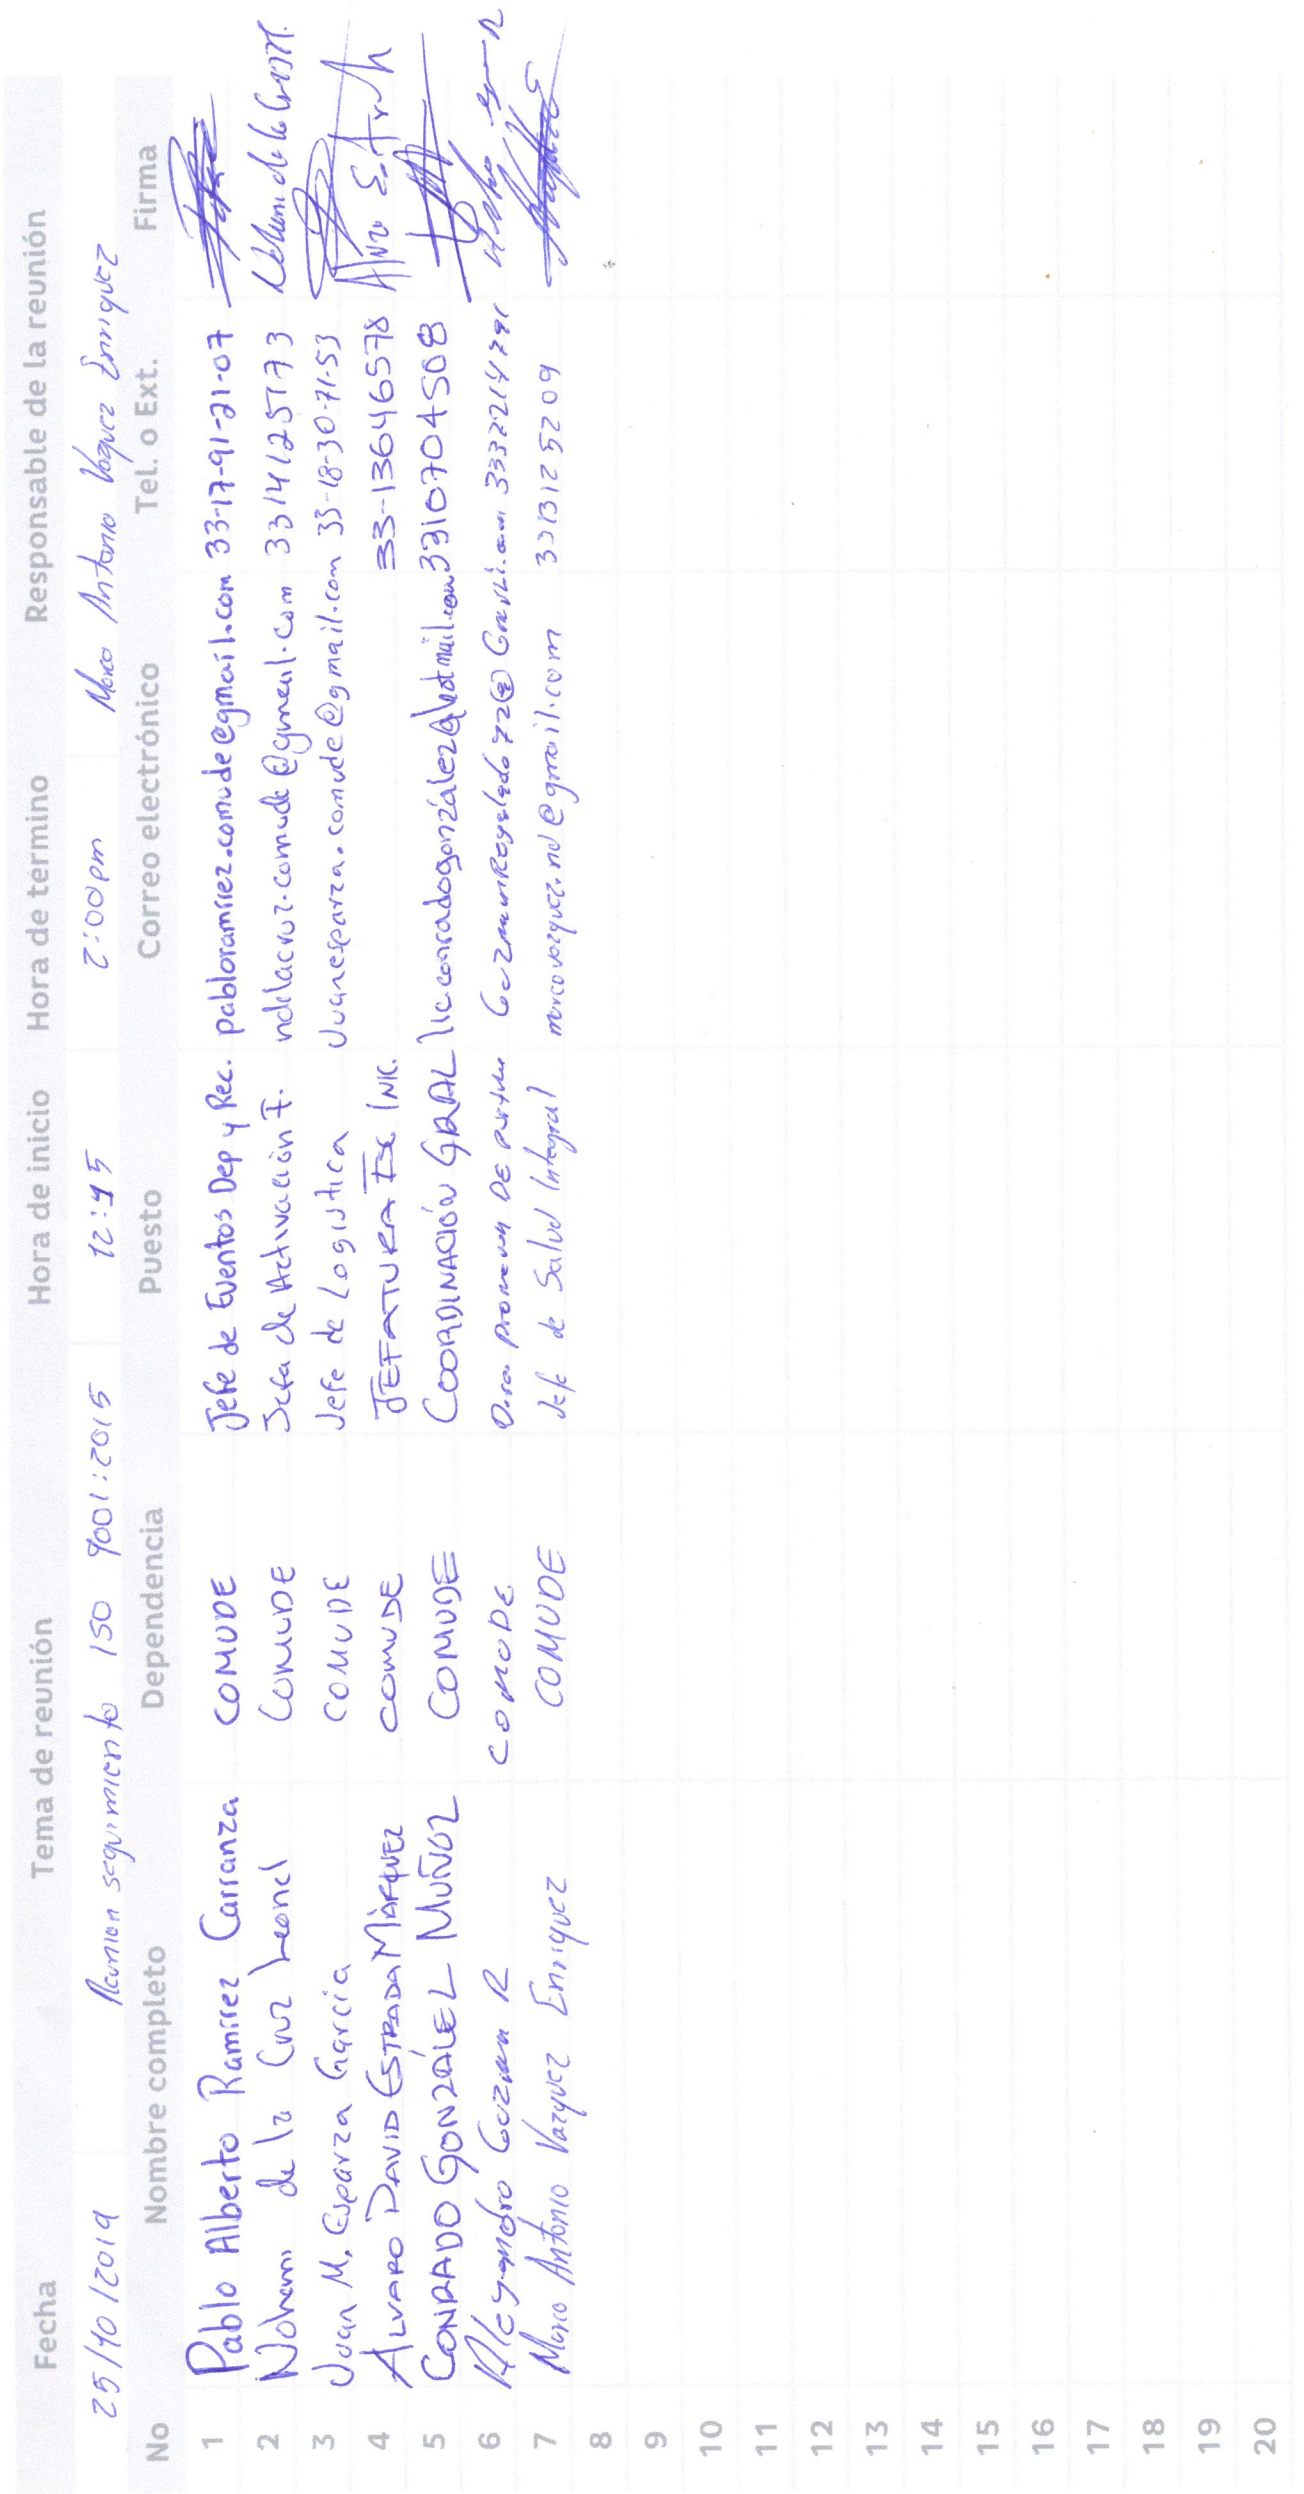 Fecha Tema de reunión Hora de inicio Hora de termino Responsable de la reunión
25/10/2019 Reunion seguimiento ISO 9001:2015 12:45 2:00pm Marco Antonio Vazquez Enriquez
No Nombre completo Dependencia Puesto Correo electrónico Tel. o Ext. Firma
1 Pablo Alberto Ramirez Carranza COMUDE Jefe de Eventos Dep y Rec. pabloramirez.comude@gmail.com 33-17-91-21-07
2 Nohemi de la Cruz Leonel COMUDE Jefa de Activación F. ndelacruz.comude@gmail.com 3314125173
3 Juan M. Esparza Garcia COMUDE Jefe de Logistica Juanesparza.comude@gmail.com 33-18-30-71-53
4 ALVARO DAVID ESTRADA MÁRQUEZ COMUDE JEFATURA 33-13646578
5 CONRADO GONZÁLEZ MUÑOZ COMUDE COORDINACIÓN GRAL lic.conradogonzalez@hotmail.com 3310704508
6 Alejandro Guzman R COMUDE
7 Marco Antonio Vazquez Enriquez COMUDE Jefe de Salud Integral marcovazquez.nd@gmail.com 3313125209
8
9
10
11
12
13
14
15
16
17
18
19
20